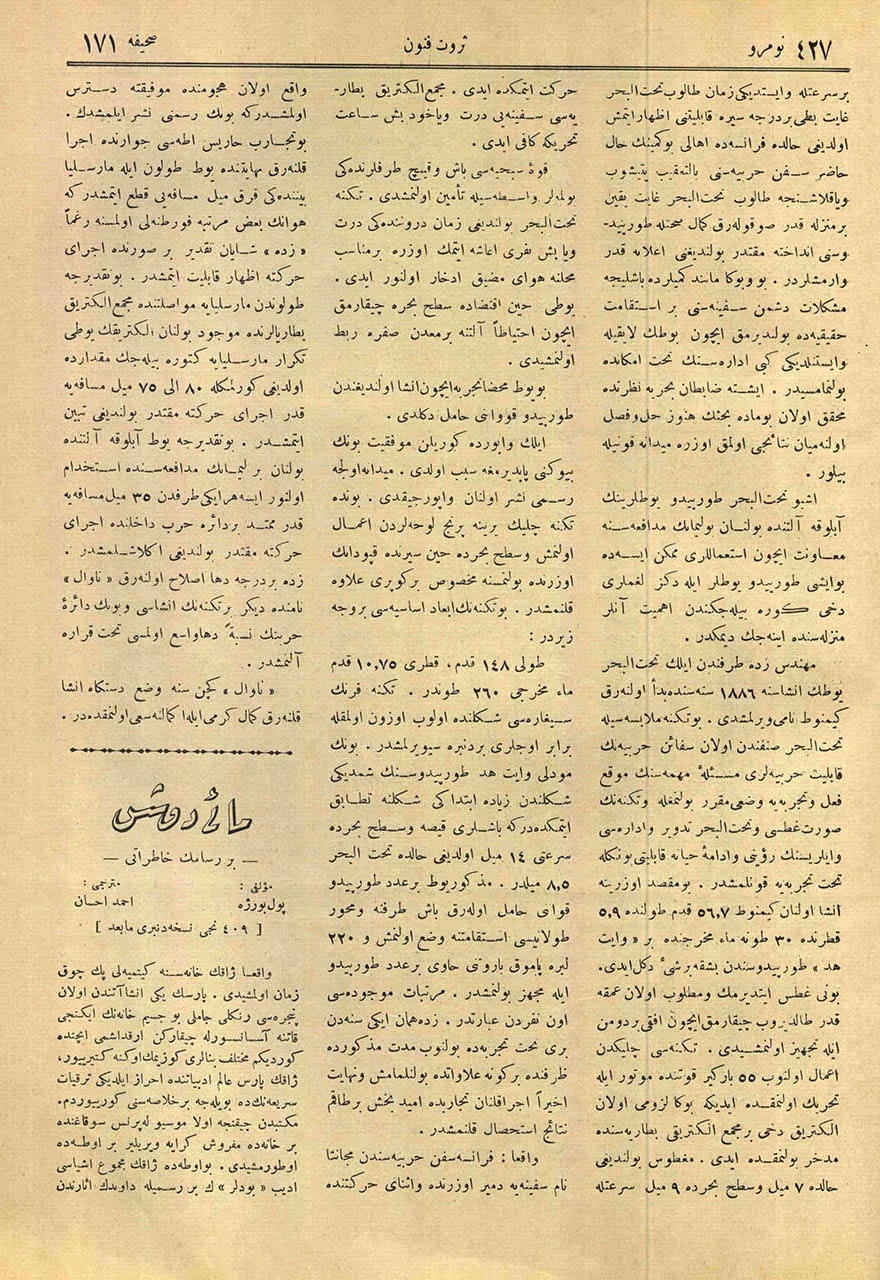 نومرو ٤٢٧
ثروت فنون
صحیفه ١٧١
بر سرعتله وایستدیکی زمان طالوب تحت البحر
غایت بطی بر درجه سیره قابلیتنی اظهار ایتمش
اولدیغی حالده فرانسه‌ده اهالی بوکمینك حال
حاضر سفن حربیه‌سنی بالتعقیب یتیشوب
ویاقلاشنجه طالوب تحت البحر غایت یقین
بر منزله قدر صوقوله‌رق کمال صحتله طورپید-
وسنی انداخته مقتدر بولندیغنی اعلانه قدر
وارمشلردر . بو وبوکا مانند کمیلرده باشلیجه
مشکلات دشمن سفینه‌سنی بر استقامت
حقیقیه‌ده بولندیرمق ایچون بوطك لایقیله
وایستنلدیکی کبی اداره‌سنك تحت امکانده
بولنامسیدر . ایشته ضابطان بحریه نظرنده
محقق اولان بوماده بحثك هنوز حل وفصل
اولنه‌میان نتائجی اولمق اوزره میدانه قونیله
بیلور .
اشبو تحت البحر طورپیدو بوطلرینك
آبلوقه آلتنده بولنان بولیمانك مدافعه‌سنه
معاونت ایچون استعماللری ممکن ایسه‌ده
بوایشی طورپیدو بوطلر ایله دکز لغملری
دخی کوره بیله‌جکندن اهمیت آنلر
منزله‌سنده اینه‌جك دیمکدر .
مهندس زده طرفندن ایلك تحت البحر
بوطك انشاسنه ١٨٨٦ سنه‌سنده بدأ اولنه‌رق
کیمنوط نامی ویرلمشدی . بوتکنه ملابسه‌سیله
تحت البحر صنفندن اولان سفائن حربیه‌نك
قابلیت حربیه‌لری مسئلهٔ مهمه‌سنك موقع
فعل وتجربه‌یه وضعی مقرر بولنمغله وتکنه‌نك
صورت غطسی وتحت البحر تدویر واداره‌سی
وایلریسنك رؤیتی وادامهٔ حیاته قابلیتی بوتکله
تحت تجربه‌یه قونلمشدر . بومقصد اوزرینه
انشا اولنان کیمنوط ٥٦,٧ قدم طولنده ٥,٩
قطرنده ٣٠ طونه ماء مخرجنده بر « وایت
هد » طورپیدوسندن بشقه برشیٔ دکل ایدی.
بونی غطس ایتدیرمك ومطلوب اولان عمقه
قدر طالدیروب چیقارمق ایچون افقی بردومن
ایله تجهیز اولنمشیدی . تکنه‌سی چلیکدن
اعمال اولنوب ٥٥ بارکیر قوتنده موتور ایله
تحریك اولنمقده ایدیکه بوکا لزومی اولان
الکتریق دخی بر مجمع الکتریقی بطاریه‌سنده
مدخر بولنمقده ایدی . مغطوس بولندیغی
حالده ٧ میل وسطح بحرده ٩ میل سرعتله
حرکت ایتمکده ایدی . مجمع الکتریق بطار-
یه‌سی سفینه‌یی درت ویاخود بش ساعت
تحریکه کافی ایدی .
قوهٔ سبحیه‌سی باش وقیچ طرفلرنده‌کی
بولمه‌لر واسطه‌سیله تأمین اولنمشدی . تکنه
تحت البحر بولندیغی زمان دروننده‌کی درت
ویا بش نفری اعاشه ایتمك اوزره بر مناسب
محلنه هوای مضیق ادخار اولنور ایدی .
بوطی حین اقتضاده سطح بحره چیقارمق
ایچون احتیاطاً آلتنه بر معدن صفره ربط
اولنمشیدی .
بو بوط محضا تجربه ایچون انشا اولندیغندن
طورپیدو قووانی حامل دکلدی .
ایلك واپورده کوریلن موفقیت بونك
بیوکنی یاپدیرمغه سبب اولدی . میدانه اولجه
رسمی نشر اولنان واپور چیقدی . بونده
تکنه چلیك یرینه پرنج لوحه‌لردن اعمال
اولنمش وسطح بحرده حین سیرنده قپودانك
اوزرنده بولنمسنه مخصوص برکوپری علاوه
قلنمشدر . بوتکنه‌نك ابعاد اساسیه‌سی بروجه
زیردر :
طولی ١٤٨ قدم ، قطری ١٠,٧٥ قدم
ماء مخرجی ٢٦٠ طوندر . تکنه فرنك
سیغاره‌سی شکلنده اولوب اوزون اولمقله
برابر اوجلری بردنبره سیوریلمشدر . بونك
مودلی وایت هد طورپیدوسنك شمدیکی
شکلندن زیاده ابتداکی شکلنه تطابق
ایتمکده‌درکه باشلری قیصه وسطح بحرده
سرعتی ١٤ میل اولدیغی حالده تحت البحر
٨,٥ میلدر . مذکور بوط بر عدد طورپیدو
قوانی حامل اوله‌رق باش طرفنه ومحور
طولانیسی استقامتنه وضع اولنمش و ٢٢٠
لیره پاموق باروتنی حاوی بر عدد طورپیدو
ایله مجهز بولنمشدر . مرتبات موجوده‌سی
اون نفردن عبارتدر . زده همان ایکی سنه‌دن
بری تحت تجربه‌ده بولنوب مدت مذکورده
ظرفنده برکونه علاوانده بولنلمامش ونهایت
اخیراً اجرا قلنان تجاربده امید بخش بر طاقم
نتائج استحصال قلنمشدر .
واقعا : فرانسه سفن حربیه‌سندن مجانتا
نام سفینه‌یه دمیر اوزرنده واثنای حرکتنده
واقع اولان هجومنده موفقیته دسترس
اولمشدرکه بونك رسمنی نشر ایلمشدك .
بوتجارب حاریس اطه‌سی جوارنده اجرا
قلنه‌رق نهایتنده بوط طولون ایله مارسلیا
بیننده‌کی قرق میل مسافه‌یی قطع ایتمشدرکه
هوانك بعض مرتبه فورطنه‌لی اولمسنه رغماً
« زده » شایان تقدیر بر صورتده اجرای
حرکته اظهار قابلیت ایتمشدر . بوتقدیرجه
طولوندن مارسلیایه مواصلتنده مجمع الکتریق
بطاریالرنده موجود بولنان الکتریقك بوطی
تکرار مارسلیایه کتوره بیله‌جك مقدارده
اولدیغی کورلمکله ٨٠ الی ٧٥ میل مسافه‌یه
قدر اجرای حرکته مقتدر بولندیغی تبین
ایتمشدر . بوتقدیرجه بوط آبلوقه آلتنده
بولنان بر لیمانك مدافعه‌سنده استخدام
اولنور ایسه هر ایکی طرفدن ٣٥ میل مسافه‌یه
قدر ممتد بر دائره حرب داخلنده اجرای
حرکته مقتدر بولندیغی اکلاشلمشدر .
زده بر درجه دها اصلاح اولنه‌رق « ناوال »
نامنده دیکر بر تکنه‌نك انشاسی وبونك دائرهٔ
حربنك نسبةً دها واسع اولمسی تحت قراره
آلنمشدر .
« ناوال » کچن سنه وضع دستکاه انشا
قلنه‌رق کمال کرمی ایله اکمالنه سعی اولنمقده‌در .
مائی دوشس
— بر رسامك خاطراتی —
مؤلفی : مترجمی :
پول بورژه احمد احسان
[ ٤٠٩ نجی نسخه‌دنبری مابعد ]
واقعا ژاقك خانه‌سنه کیتمیه‌لی پك چوق
زمان اولمشیدی . پارسك یکی انشاآتندن اولان
پنجره‌سی رنکلی جاملی بو جسیم خانه‌نك ایکنجی
قاتنه آسانسورله چیقارکن ارقداشمی ایچنده
کوردیکم مختلف بنالری کوزیمك اوکنه کتیریپور،
ژاقك پارس عالم ادبیاتنده احراز ایلدیکی ترقیات
سریعه‌نك‌ده بویله‌جه بر خلاصه‌سنی کورییوردم.
مکتبدن چیقنجه اولا موسیو له‌پرنس سوقاغنده
بر خانه‌ده مفروش کرایه ویریلیر بر اوطه‌ده
اوطورمشیدی. بو اوطه‌ده ژاقك مجموع اشیاسی
ادیب « بودلر » ك بر رسمیله داویدك آثارندن